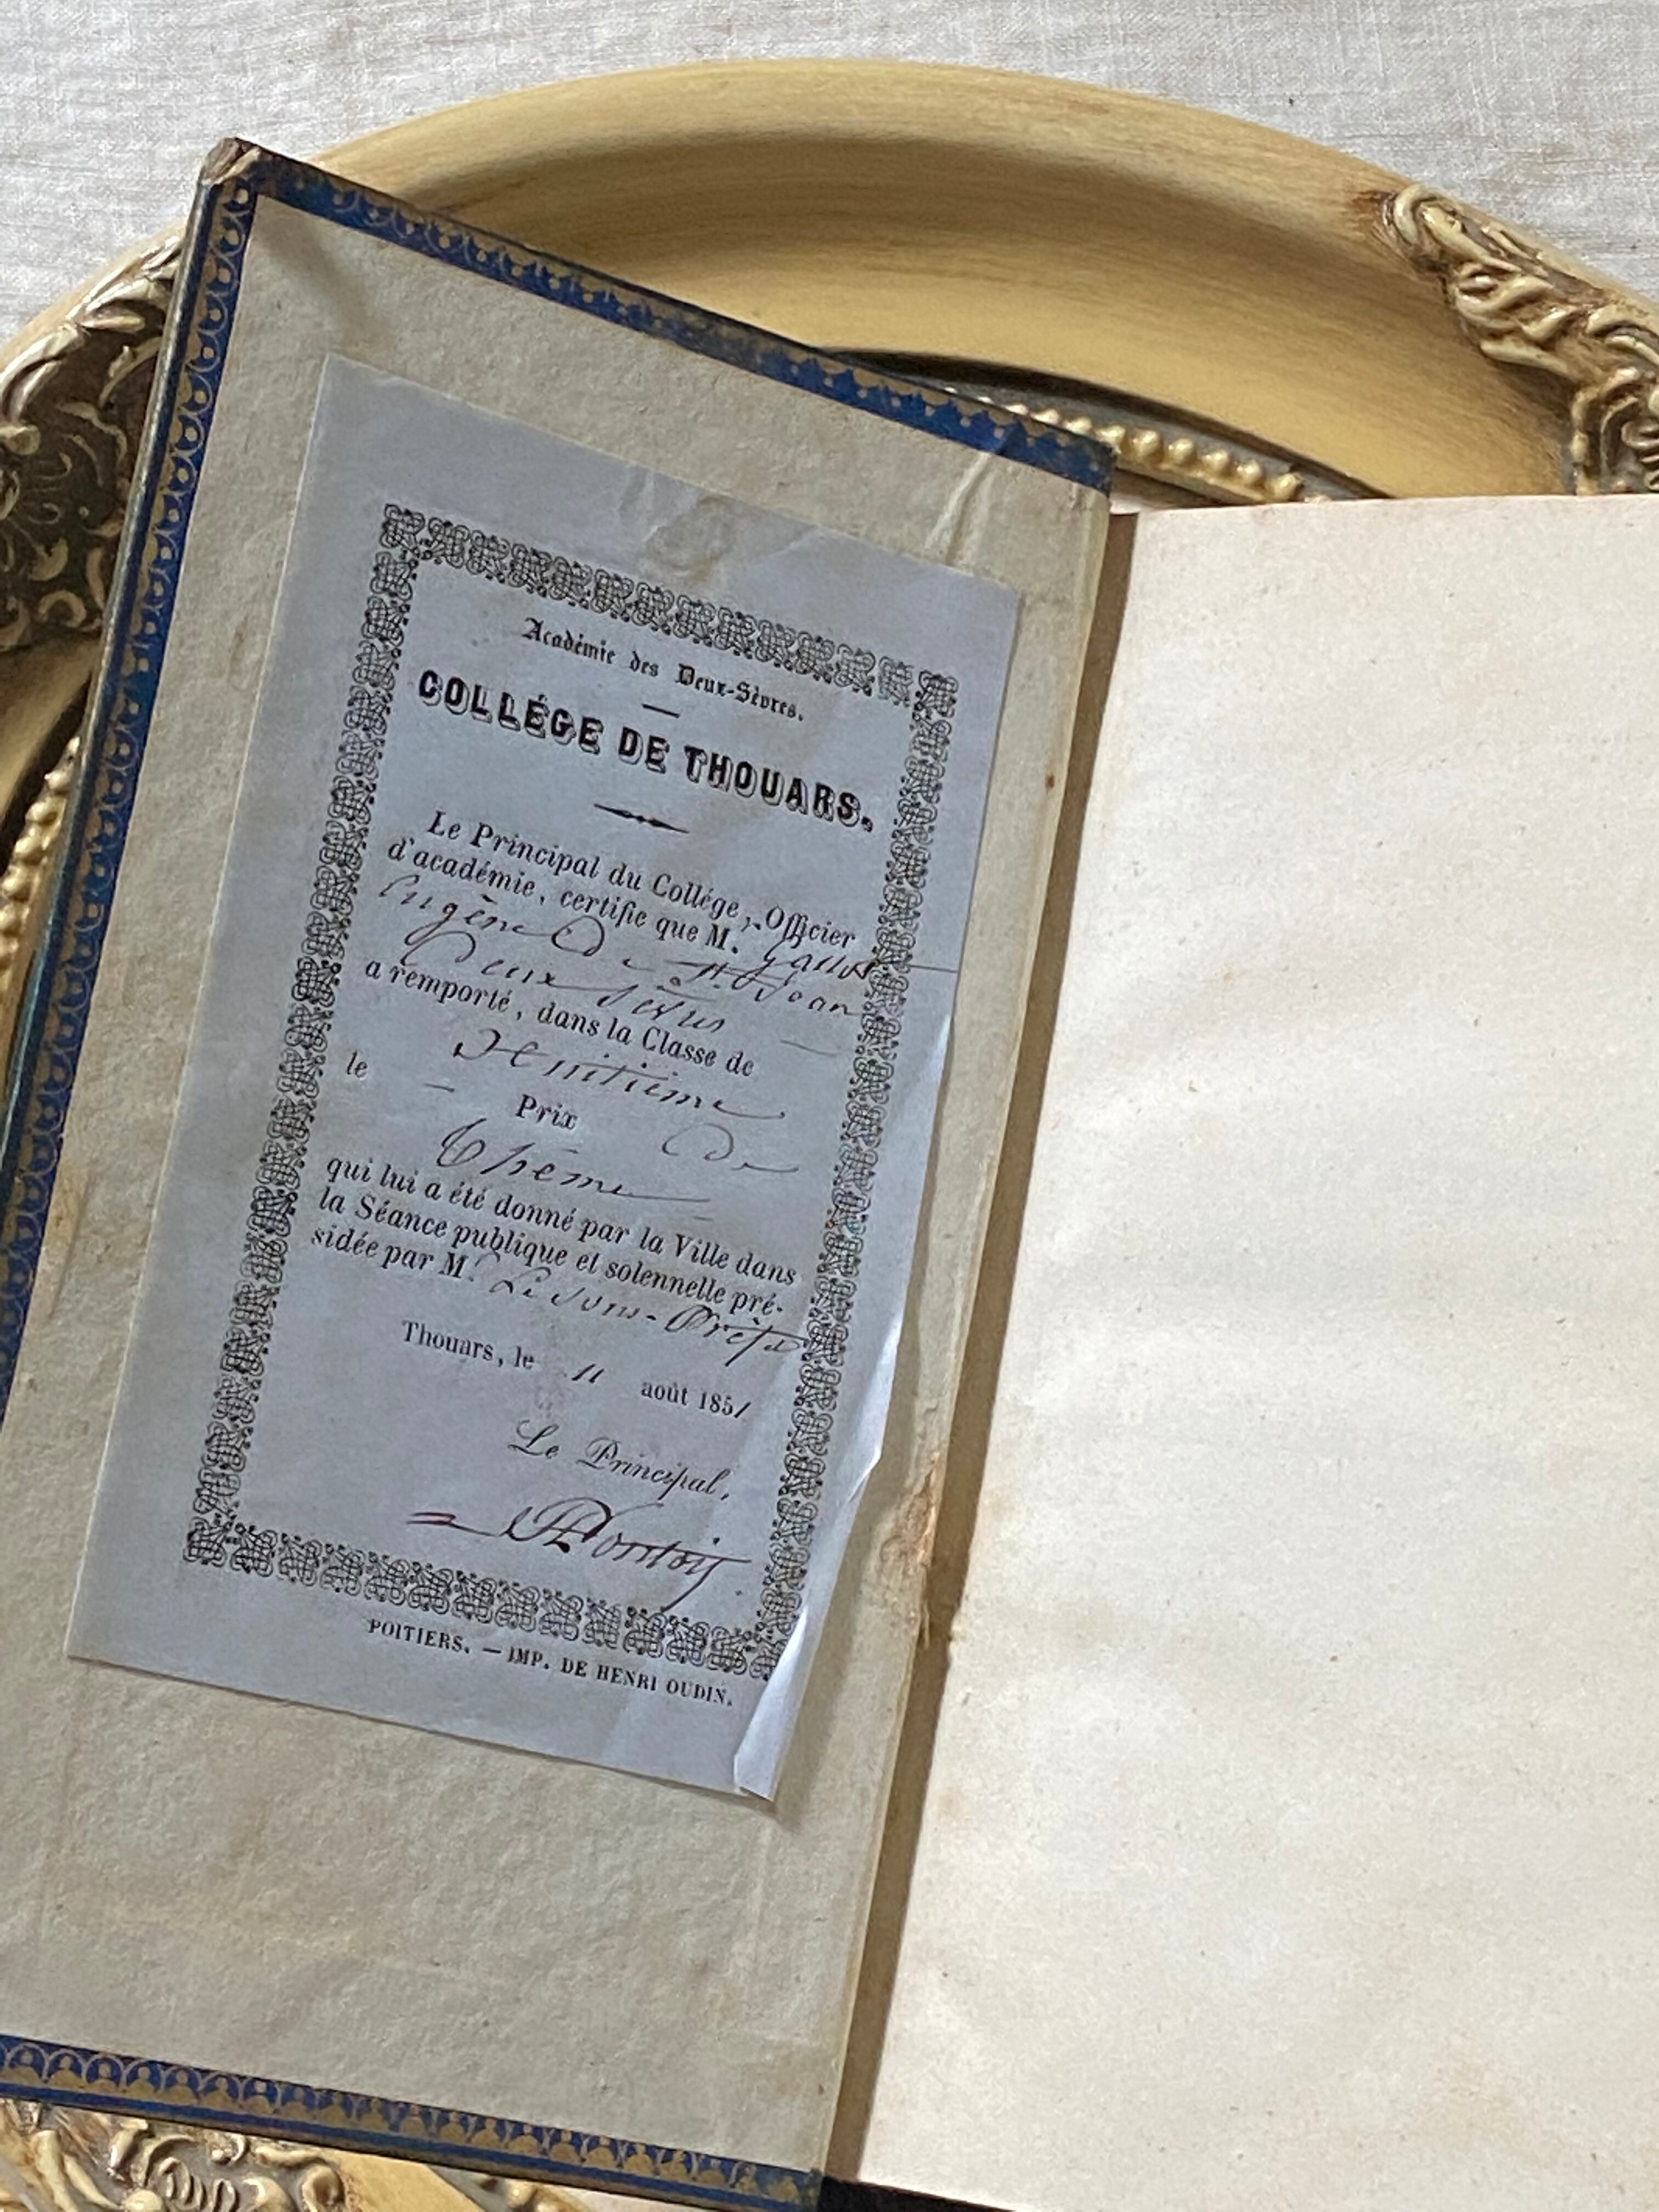 Académie des Deux-Sèvres.
COLLÉGE DE THOUARS.
Le Principal du Collége, Officier
d'académie, certifie que M.
Eugène De St Jean
Deux Sèvres
a remporté, dans la Classe de
Huitième
le — Prix de
Thème
qui lui a été donné par la Ville dans
la Séance publique et solennelle pré-
sidée par M. Le Sous-Préfet
Thouars, le 11 août 1851
Le Principal,
POITIERS. — IMP. DE HENRI OUDIN.